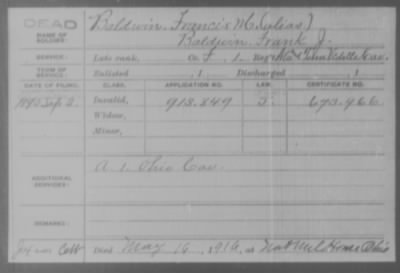 DEAD
NAME OF SOLDIER:
Baldwin, Francis M. (alias)
Baldwin, Frank J.
SERVICE:
Late rank, Co. F, 1, Reg't
TERM OF SERVICE:
Enlisted , 1 Discharged , 1
DATE OF FILING. CLASS. APPLICATION NO. LAW. CERTIFICATE NO.
1890 Sep 2. Invalid, 913.849 J. 673.966
Widow,
Minor,
ADDITIONAL SERVICES:
A. 1. Ohio Cav.
REMARKS:
Died May 16, 1916, at Nat Mil Home Ohio